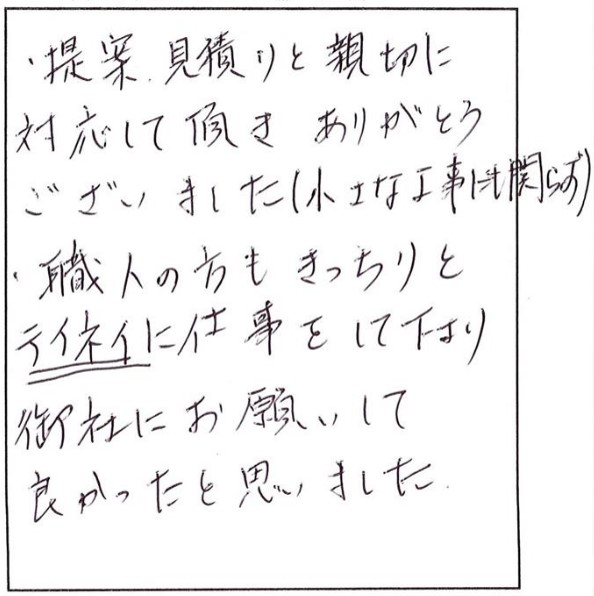 ・提案.見積りと親切に
対応して頂き ありがとう
ございました(小さな工事にも関らず)
・職人の方もきっちりと
テイネイに仕事をして下さり
御社にお願いして
良かったと思いました.